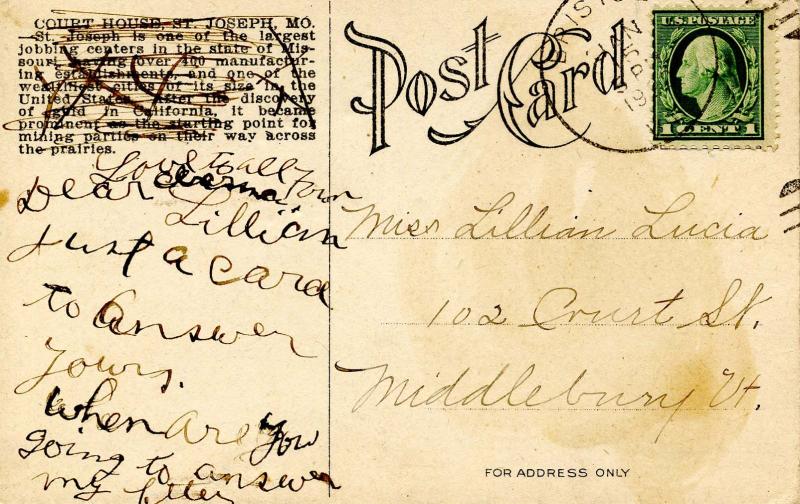 COURT HOUSE, ST. JOSEPH, MO.
St. Joseph is one of the largest
jobbing centers in the state of Mis-
souri, having over 400 manufactur-
ing establishments, and one of the
wealthiest cities of its size in the
United States. After the discovery
of gold in California, it became
prominent as the starting point for
mining parties on their way across
the prairies.
Love to all
Dear
Lillian
Just a card
to answer
yours.
when are you
going to answer
my letter
Post Card
U.S. POSTAGE
1 CENT 1
Miss Lillian Lucia
102 Court St.
Middlebury Vt.
FOR ADDRESS ONLY